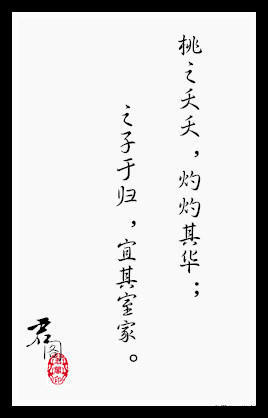 桃之夭夭，灼灼其华；
之子于归，宜其室家。
君
阁